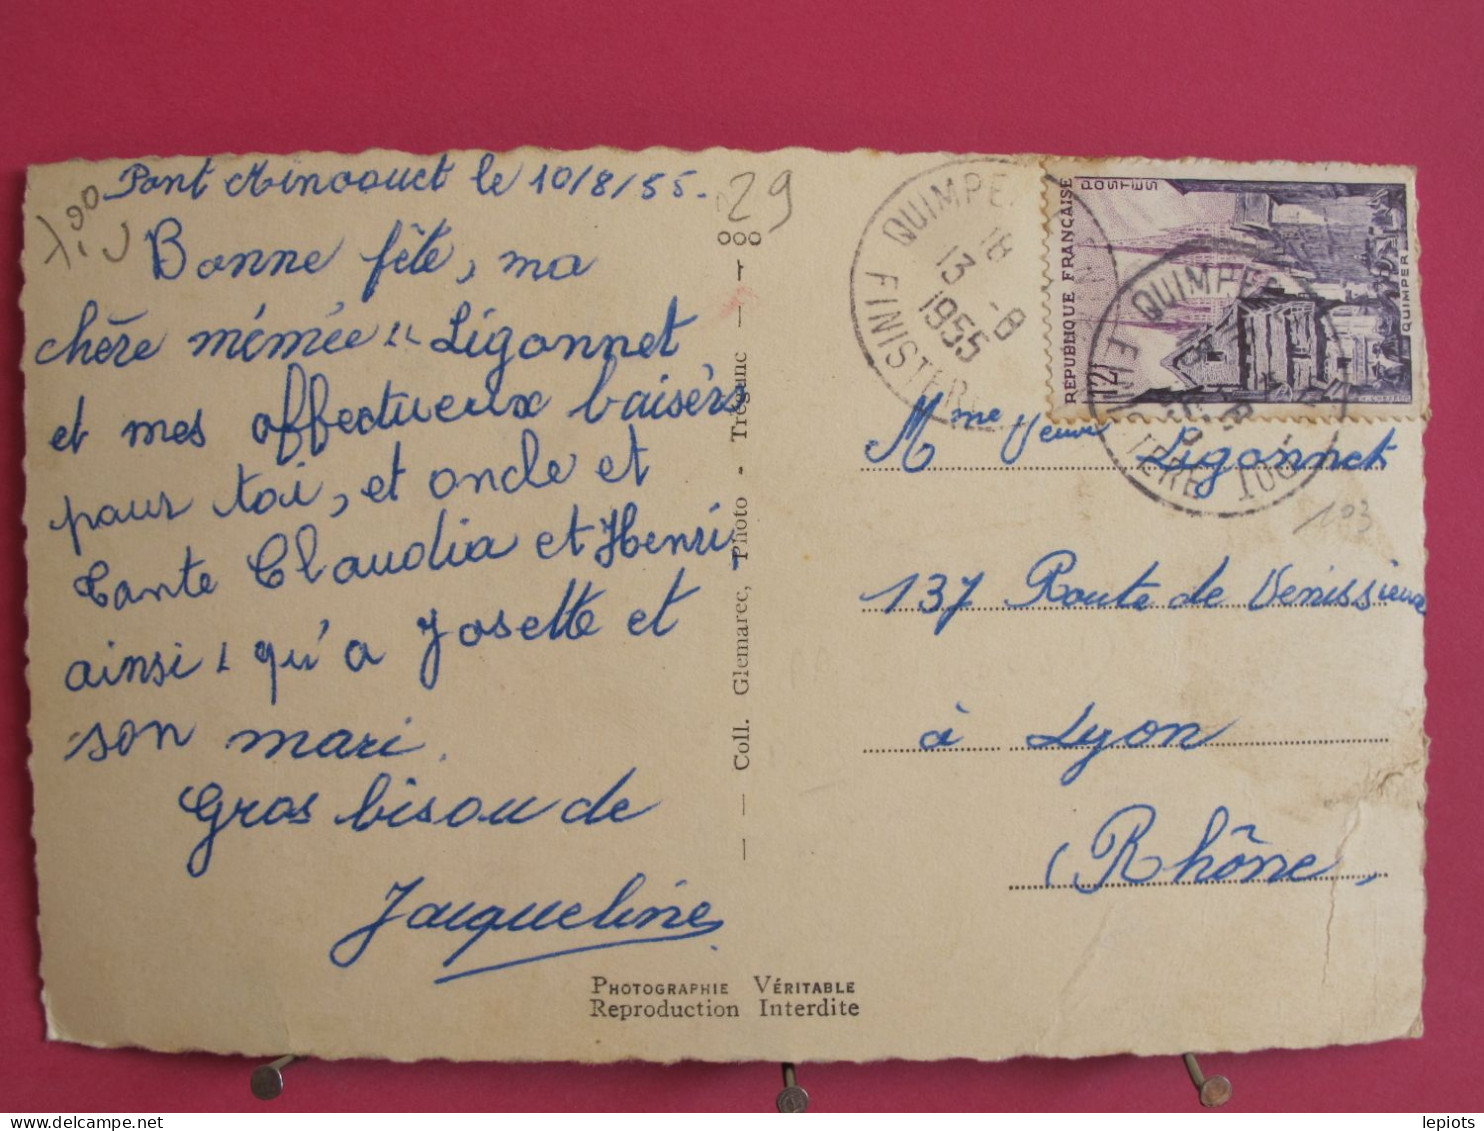 Pont Minaouet le 10/8/55.
29
Bonne fête, ma
chère mémée " Ligonnet
et mes affectueux baisers
pour toi, et oncle et
Tante Claudia et Henri
ainsi qu'a Josette et
son mari.
Gros bisou de
Jacqueline
Coll. Glemarec, Photo - Trégunc
PHOTOGRAPHIE VÉRITABLE
Reproduction Interdite
QUIMPER
18
13 -8
1955
FINISTERE
RÉPUBLIQUE FRANÇAISE
POSTES
12F
QUIMPER
QUIMPER
FINISTERE
Mme Veuve Ligonnet
103
137 Route de Venissieux
à Lyon
(Rhône)
lepiots
delcampe.net